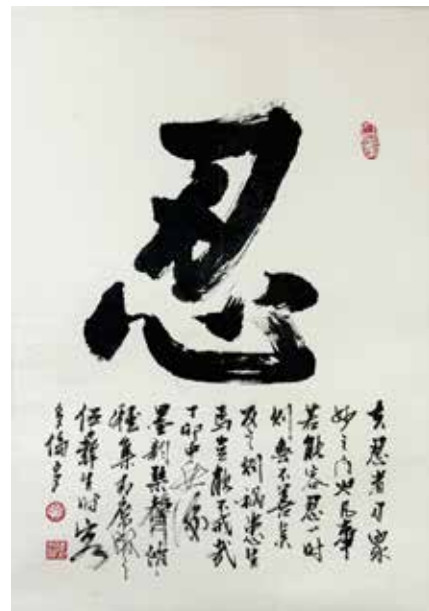 忍
夫忍者乃眾
妙之門也凡事
若能容忍一時
則無不善矣
反之則禍患生
焉豈能不戒哉
丁卯中
墨韵琴聲
雅集
伍彝生時客
多倫多